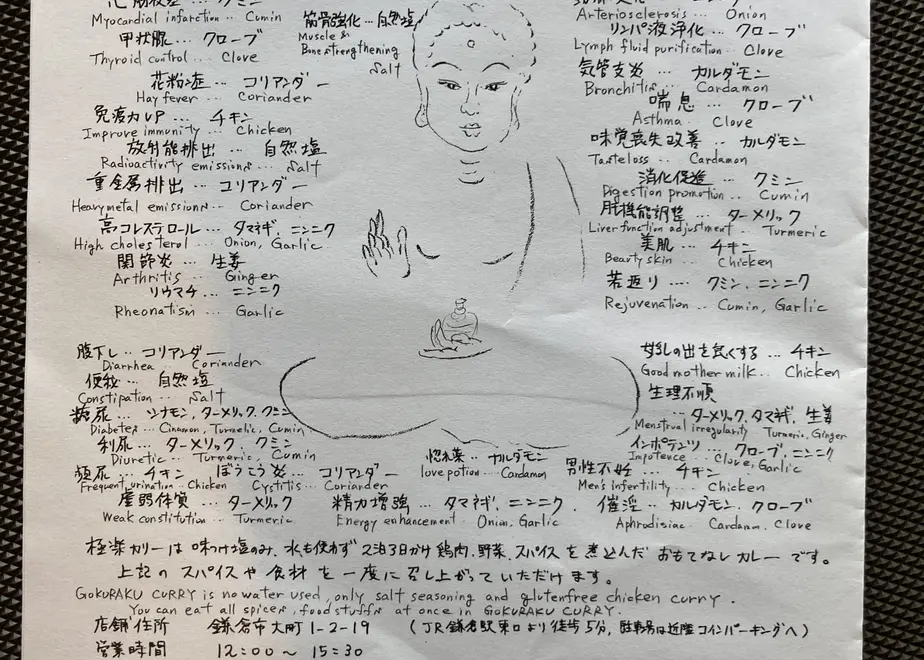 心筋梗塞 … クミン
Myocardial infarction … Cumin
甲状腺 … クローブ
Thyroid control … Clove
花粉症 … コリアンダー
Hay fever … Coriander
免疫力UP … チキン
Improve immunity … Chicken
放射能排出 … 自然塩
Radioactivity emissions … Salt
重金属排出 … コリアンダー
Heavymetal emissions … Coriander
高コレステロール … タマネギ、ニンニク
High cholesterol … Onion, Garlic
関節炎 … 生姜
Arthritis … Ginger
リウマチ … ニンニク
Rheonatism … Garlic
筋骨強化 … 自然塩
Muscle &
Bone strengthening
Salt
Arteriosclerosis … Onion
リンパ液浄化 … クローブ
Lymph fluid purification … Clove
気管支炎 … カルダモン
Bronchitis … Cardamon
喘息 … クローブ
Asthma … Clove
味覚喪失改善 … カルダモン
Tasteloss … Cardamon
消化促進 … クミン
Digestion promotion … Cumin
肝機能調整 … ターメリック
Liver function adjustment … Turmeric
美肌 … チキン
Beauty skin … Chicken
若返り … クミン、ニンニク
Rejuvenation … Cumin, Garlic
腹下し … コリアンダー
Diarrhea Coriander
便秘 … 自然塩
Constipation … Salt
糖尿 … シナモン、ターメリック、クミン
Diabetes … Cinamon, Turmelic, Cumin
利尿 … ターメリック、クミン
Diuretic … Turmeric, Cumin
頻尿 … チキン
Frequent urination … Chicken
ぼうこう炎 … コリアンダー
Cystitis … Coriander
虚弱体質 … ターメリック
Weak constitution … Turmeric
惚れ薬 … カルダモン
love potion … Cardamon
精力増強 … タマネギ、ニンニク
Energy enhancement … Onion, Garlic
母乳の出を良くする … チキン
Good mother milk … Chicken
生理不順
… ターメリック、タマネギ、生姜
Menstrual irregularity Turmeric, Ginger
インポテンツ … クローブ、ニンニク
Impotence … Clove, Garlic
男性不妊 … チキン
Men's infertility … Chicken
催淫 … カルダモン、クローブ
Aphrodisiac Cardamon, Clove
極楽カリーは味つけ塩のみ、水も使わず2泊3日かけ鶏肉、野菜、スパイスを煮込んだおもてなしカレーです。
上記のスパイスや食材を一度に召し上がっていただけます。
GOKURAKU CURRY is no water used, only salt seasoning and glutenfree chicken curry.
You can eat all spices, foodstuffs at once in GOKURAKU CURRY.
店舗住所 鎌倉市大町1-2-19 (JR鎌倉駅東口より徒歩5分、駐車場は近隣コインパーキングへ)
営業時間 12:00~15:30